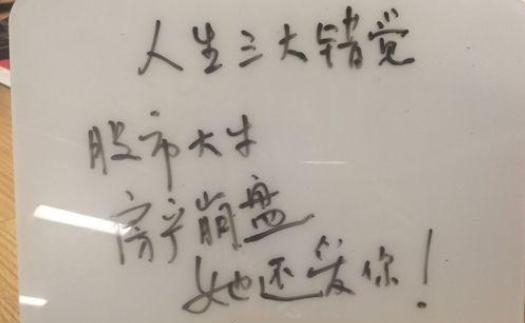 人生三大错觉
股市大牛
房产崩盘
她还爱你！